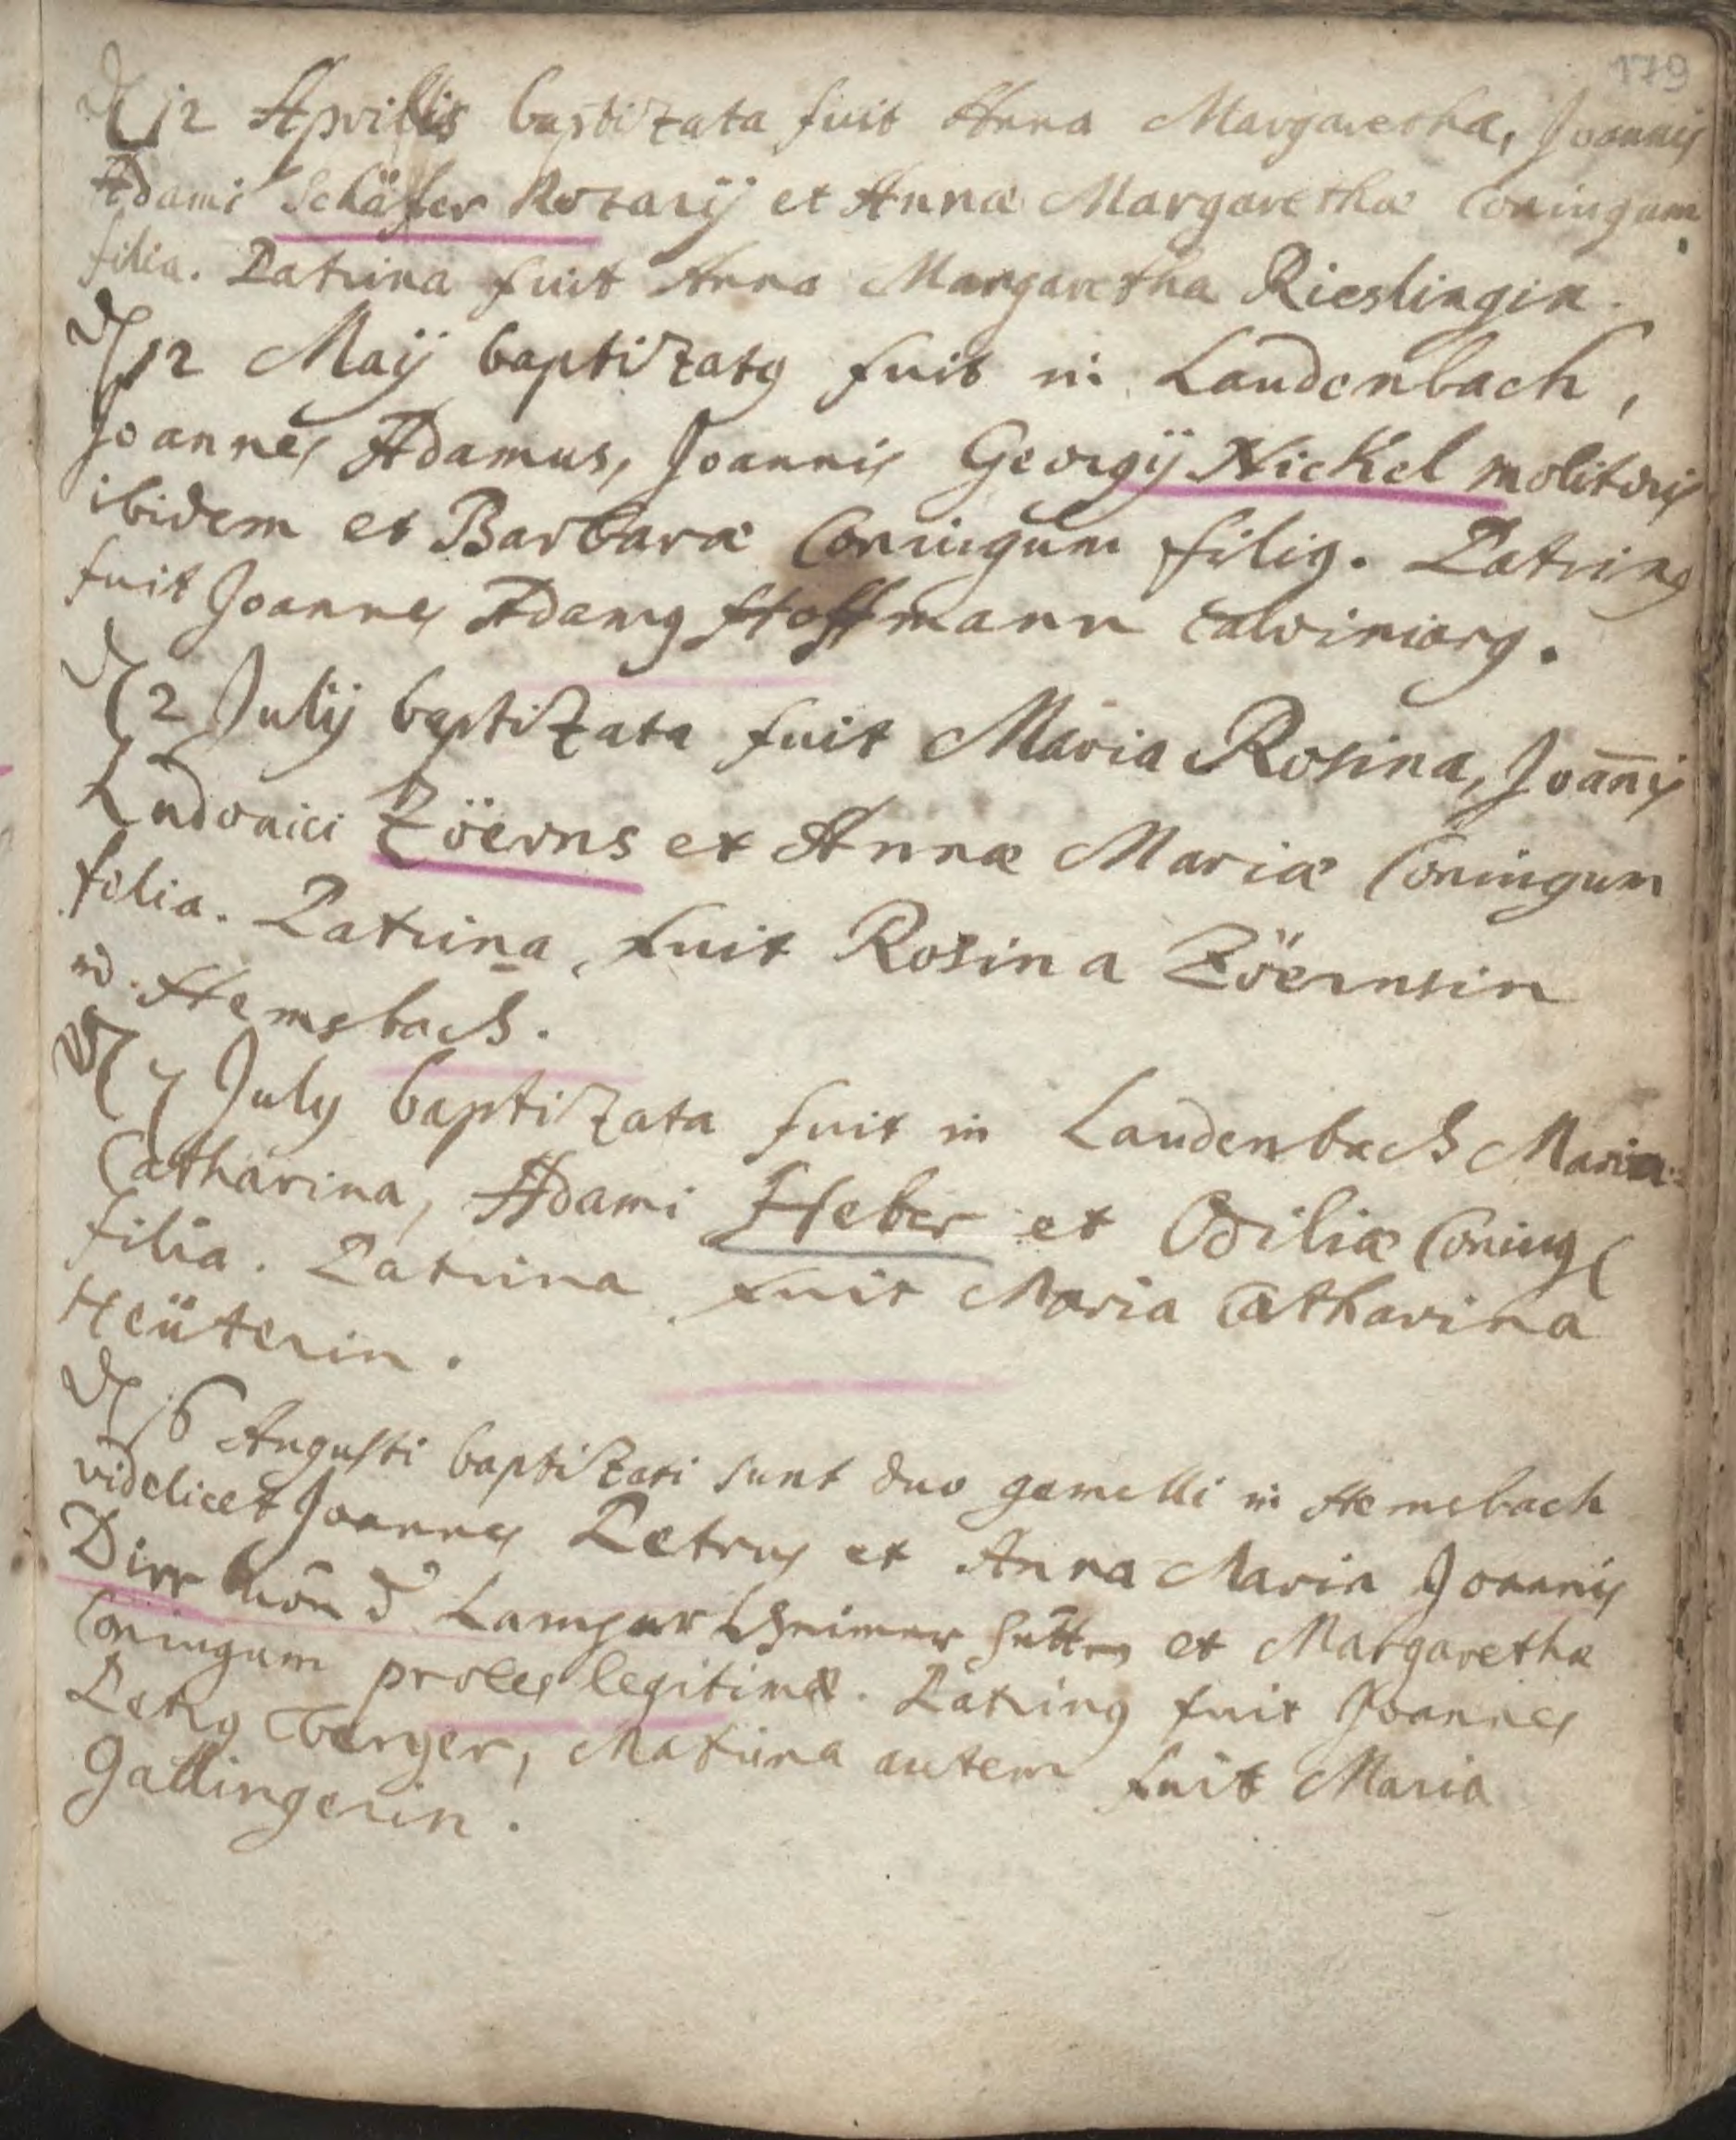 179
12 Aprillis baptizata fuit Anna Margaretha, Joannis
Adami Schäffer Rotarij et Annæ Margarethæ Coniugum
filia. Patrina fuit Anna Margaretha Rieslingin.
12 Maij baptizatg fuit in Laudenbach,
Joannes Adamus, Joannis Georgij Nickel molitoris
ibidem et Barbaræ Coniugum filig. Patring
fuit Joannes Adamg Hoffmann calviniang.
2 Julij baptizata fuit Maria Rosina, Joan̄is
Ludovici Zöerns et Annæ Mariæ Coniugum
filia. Patrina fuit Rosina Zöernsin
Hemsbach.
7 July baptizata fuit in Laudenbach Maria
Catharina, Adami Heber et Odiliæ Coniug
filia. Patrina fuit Maria Catharina
Heüterin.
16 Augusti baptizati sunt duo gemelli in Hemsbach
videlicet Joannes Petrus et Anna Maria Joannis
Dirr von d Lampertheimer hütten et Margaretha
Coniugum proles legitimæ. Patring fuit Joannes
Petrg Berger, Matrina autem fuit Maria
Gallingerin.